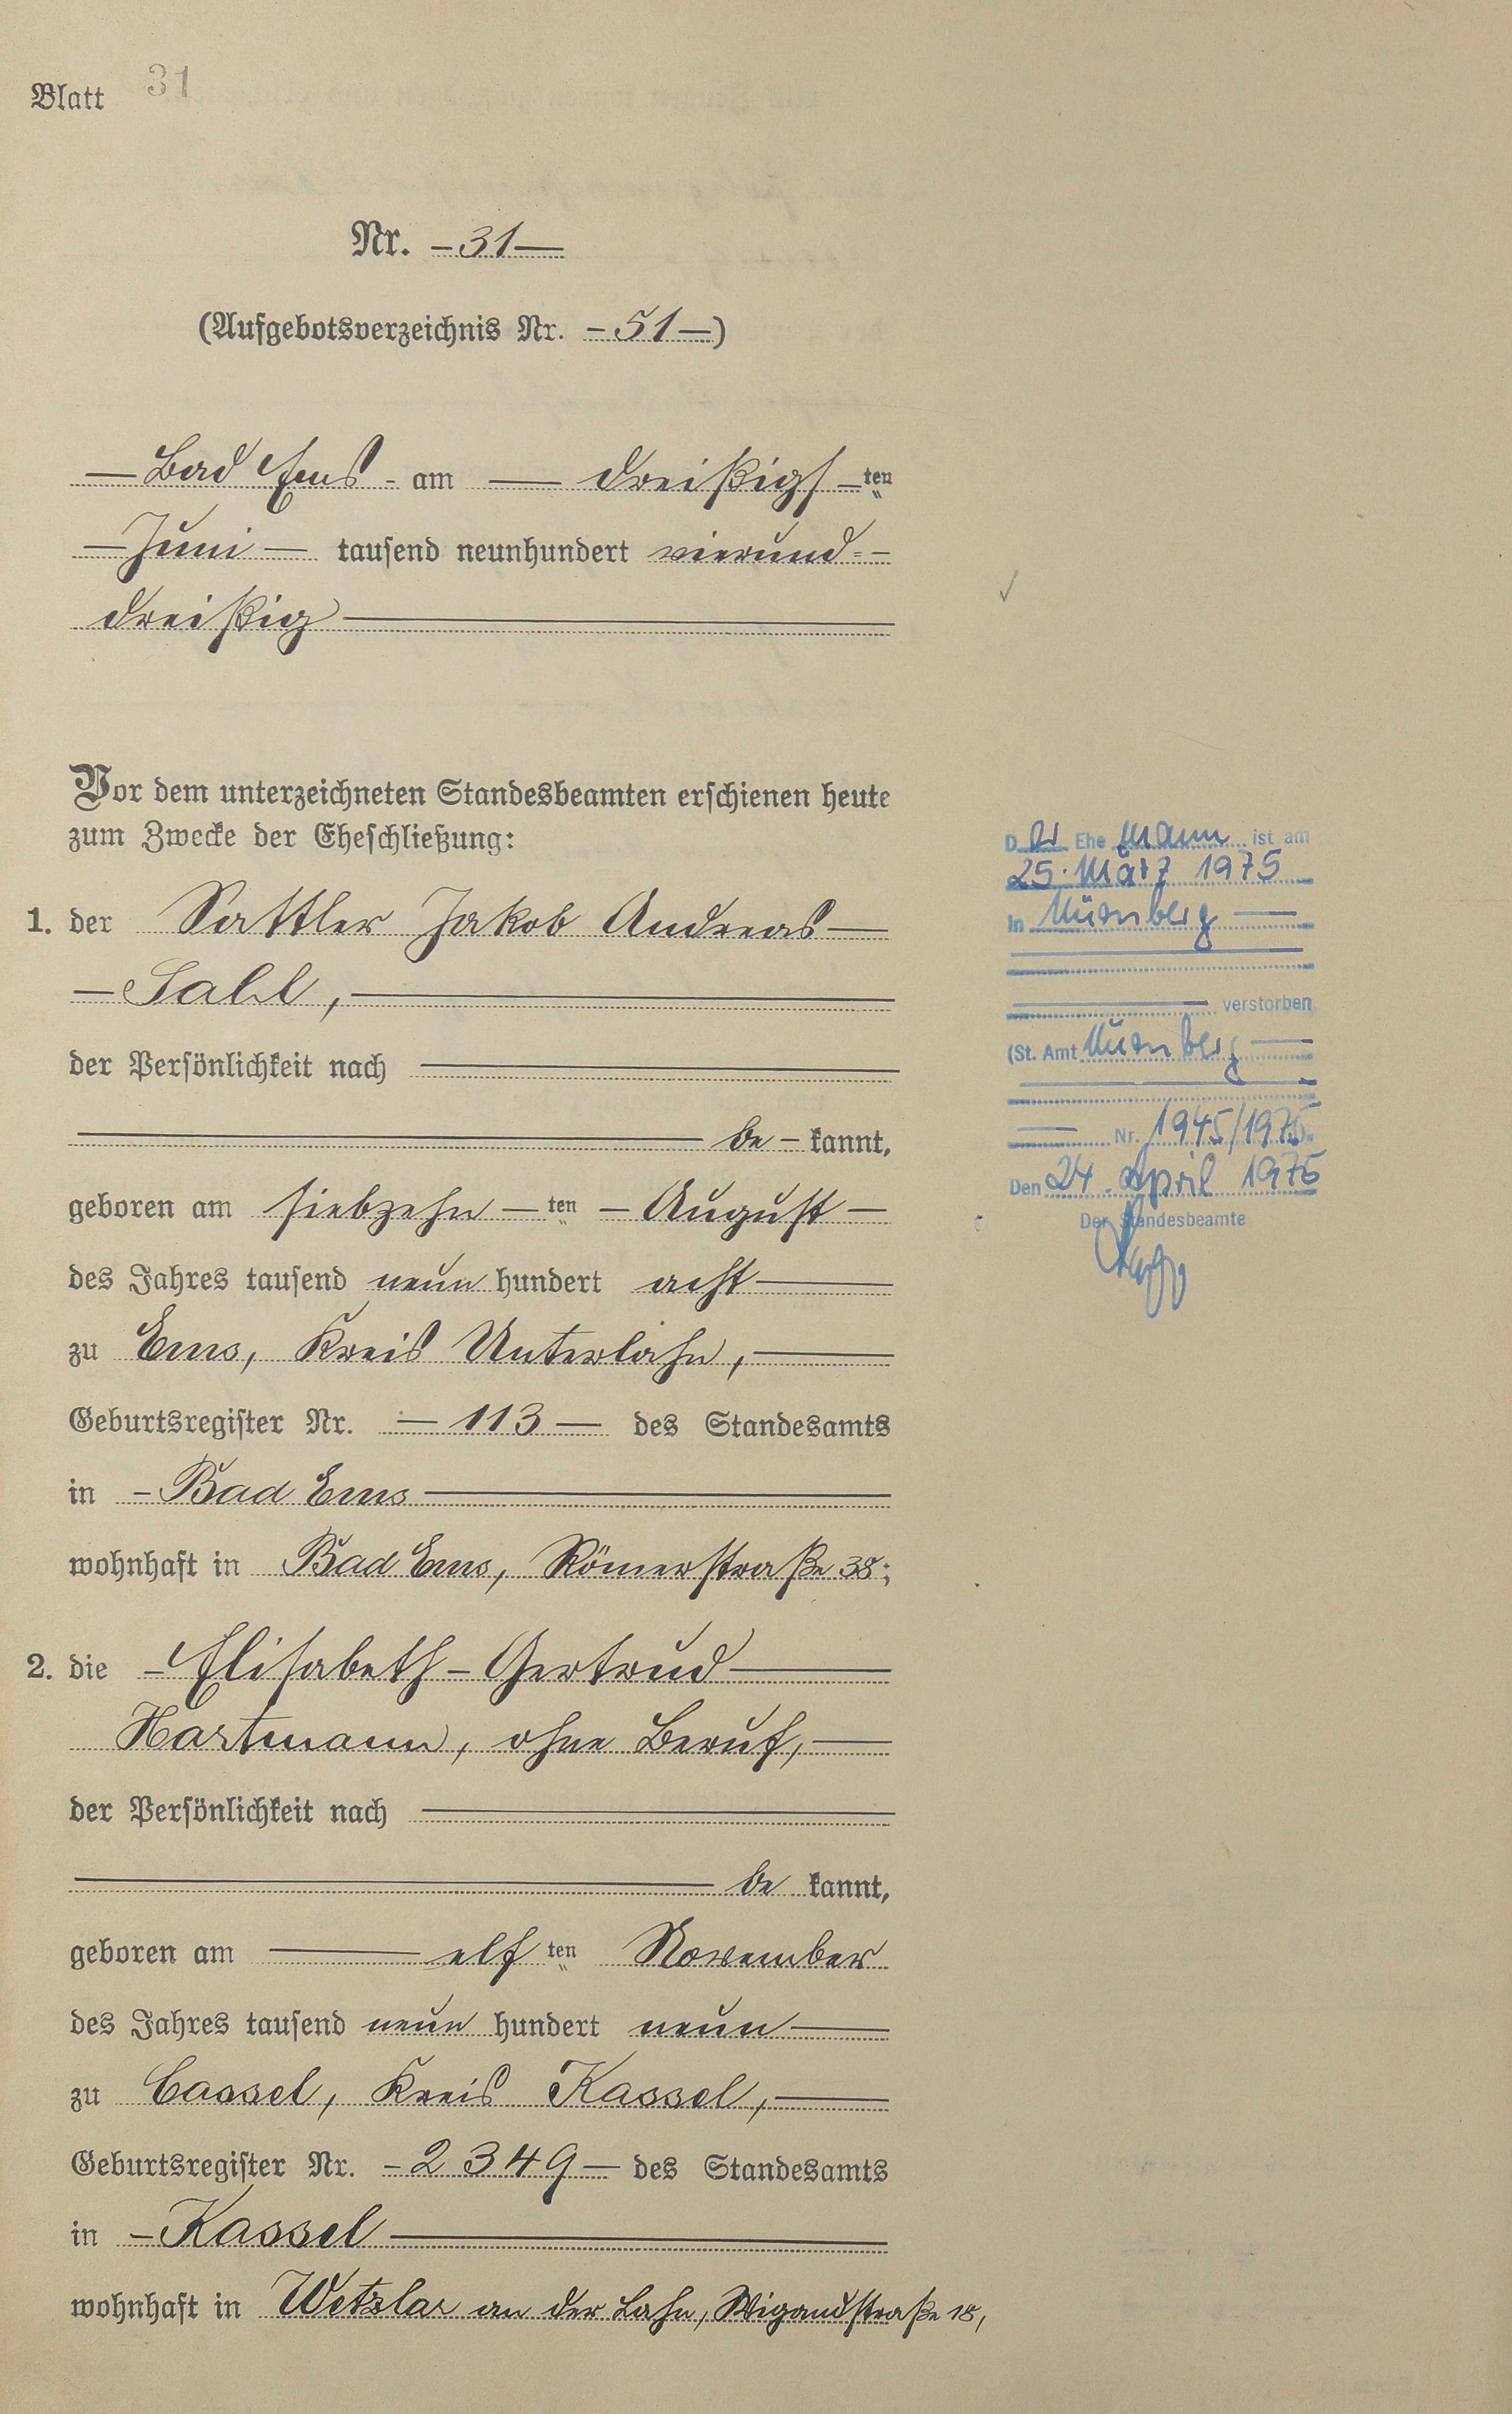 Blatt 31
Nr. – 31 —
(Aufgebotsverzeichnis Nr. – 51 —)
— Bad Ems - am — dreißigs – ten
— Juni — tausend neunhundert vierund= –
dreißig —
Vor dem unterzeichneten Standesbeamten erschienen heute
zum Zwecke der Eheschließung:
1. der Sattler Jakob Andreas —
— Sahl, —
der Persönlichkeit nach —
— be – kannt,
geboren am siebzehn – ten – August –
des Jahres tausend neun hundert acht —
zu Ems, Kreis Unterlahn, —
Geburtsregister Nr. — 113 — des Standesamts
in – Bad Ems —
wohnhaft in Bad Ems, Römerstraße 38;
2. die – Elisabeth – Gertrud —
Hartmann, ohne Beruf, —
der Persönlichkeit nach —
— be kannt,
geboren am — elf ten November
des Jahres tausend neun hundert neun —
zu Cassel, Kreis Kassel, —
Geburtsregister Nr. – 2349 – des Standesamts
in – Kassel —
wohnhaft in Wetzlar an der Lahn, Wigandstraße 18,
D er Ehe mann ist am
25. März 1975
in Nürnberg —
— verstorben
(St. Amt Nürnberg —
— Nr. 1945/1975).
Den 24. April 1975
Der Standesbeamte